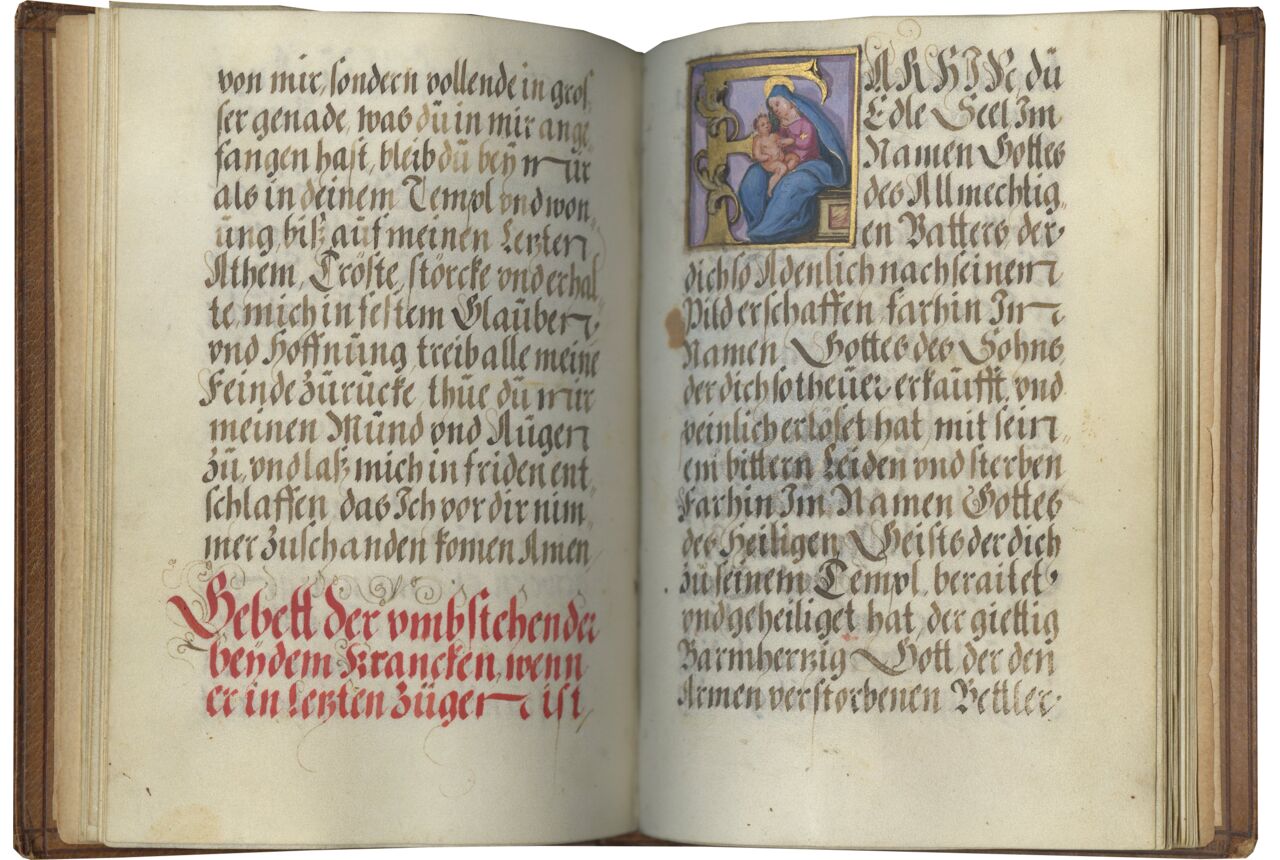 von mir, sondern vollende in gros,
ser genade, was dü in mir ange,
fangen hast, bleib dü beÿ mir
als in deinem Templ vnd won,
üng, biß aüf meinen Letzten
Athem, Tröste, störcke vnd erhal,
te, mich in festem Glaüben,
vnd Hoffnüng treib alle meine
Feinde zürücke, thüe dü mir
meinen Münd vnd Aügen
zü, vnd laß mich in friden ent,
schlaffen, das Ich vor dir nim,
mer züschanden komen Amen
Gebett der vmbstehenden
beÿ dem Krancken, wenn
er in Letzten zügen ist,
FARHIN, dü
Edle Seel Im
Namen Gottes
des Allmechtig,
en Vatters, der
dich so Adenlich nach seinem
Pild erschaffen, farhin Im
Namen Gottes des Sohns,
der dich so theüer erkaüfft, vnd
peinlich erlöset hat, mit sein,
em bittern Leiden vnd sterben
Farhin Im Namen Gottes
des Heiligen Geists der dich
zü seinem Templ, beraitet,
vnd geheiliget hat, der giettig
Barmhertzig Gott der den
Armen verstorbenen Bettler